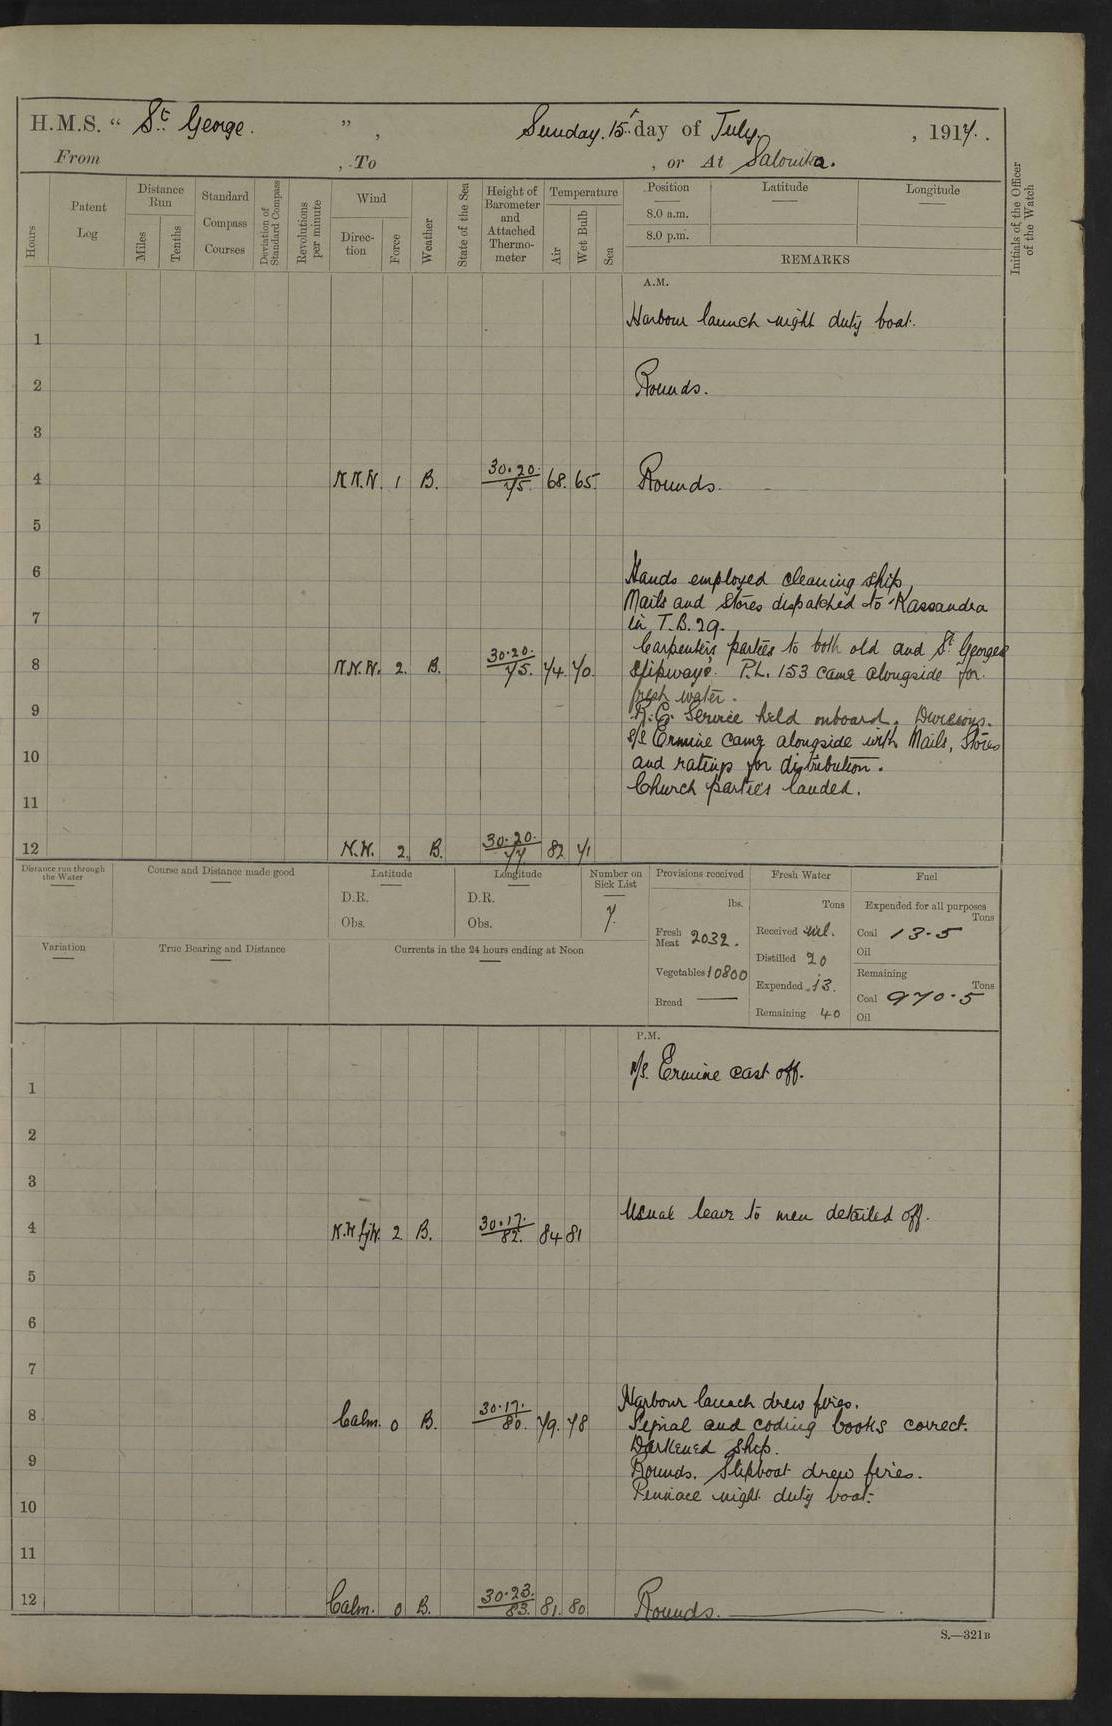 H.M.S. “ St. George. ” , Sunday. 15th day of July , 1917.
From , To , or At Salonika.
Hours
Patent Log
Distance Run
Miles
Tenths
Standard Compass Courses
Deviation of Standard Compass
Revolutions per minute
Wind
Direction
Force
Weather
State of the Sea
Height of Barometer and Attached Thermometer
Temperature
Air
Wet Bulb
Sea
Position Latitude Longitude
8.0 a.m.
8.0 p.m.
REMARKS
Initials of the Officer of the Watch
A.M.
Harbour launch night duty boat.
1
2 Rounds.
3
4 N.N.W. 1 B. 30.20. 75. 68. 65. Rounds.
5
6 Hands employed cleaning ship,
Mails and Stores dispatched to Kassandra
7 in T.B. 29.
Carpenters parties to both old and St Georges
8 N.N.W. 2. B. 30.20. 75. 74. 70. slipways. P.L. 153 came alongside for
fresh water.
9 R.C. Service held onboard. Divisions.
S/S Ermine came alongside with Mails, Stores
10 and ratings for distribution.
11 Church parties landed.
12 N.W. 2. B. 30.20. 77 82 71
Distance run through the Water
Course and Distance made good
Latitude
D.R.
Obs.
Longitude
D.R.
Obs.
Number on Sick List
7.
Provisions received
lbs.
Fresh Meat 2032.
Vegetables 10800
Bread —
Fresh Water
Tons
Received nil.
Distilled 20
Expended 13.
Remaining 40
Fuel
Expended for all purposes
Tons
Coal 13.5
Oil
Remaining
Tons
Coal 970.5
Oil
Variation
True Bearing and Distance
Currents in the 24 hours ending at Noon
P.M.
S/S. Ermine cast off.
1
2
3
4 N.W by W. 2 B. 30.17. 82. 84 81 Usual leave to men detailed off.
5
6
7
Harbour launch drew fires.
8 Calm. 0 B. 30.17. 80. 79. 78 Signal and coding books correct.
Darkened Ship.
9 Rounds. Slipboat drew fires.
Pinnace night duty boat.
10
11
12 Calm. 0 B. 30.23. 83. 81. 80 Rounds.
S.—321B